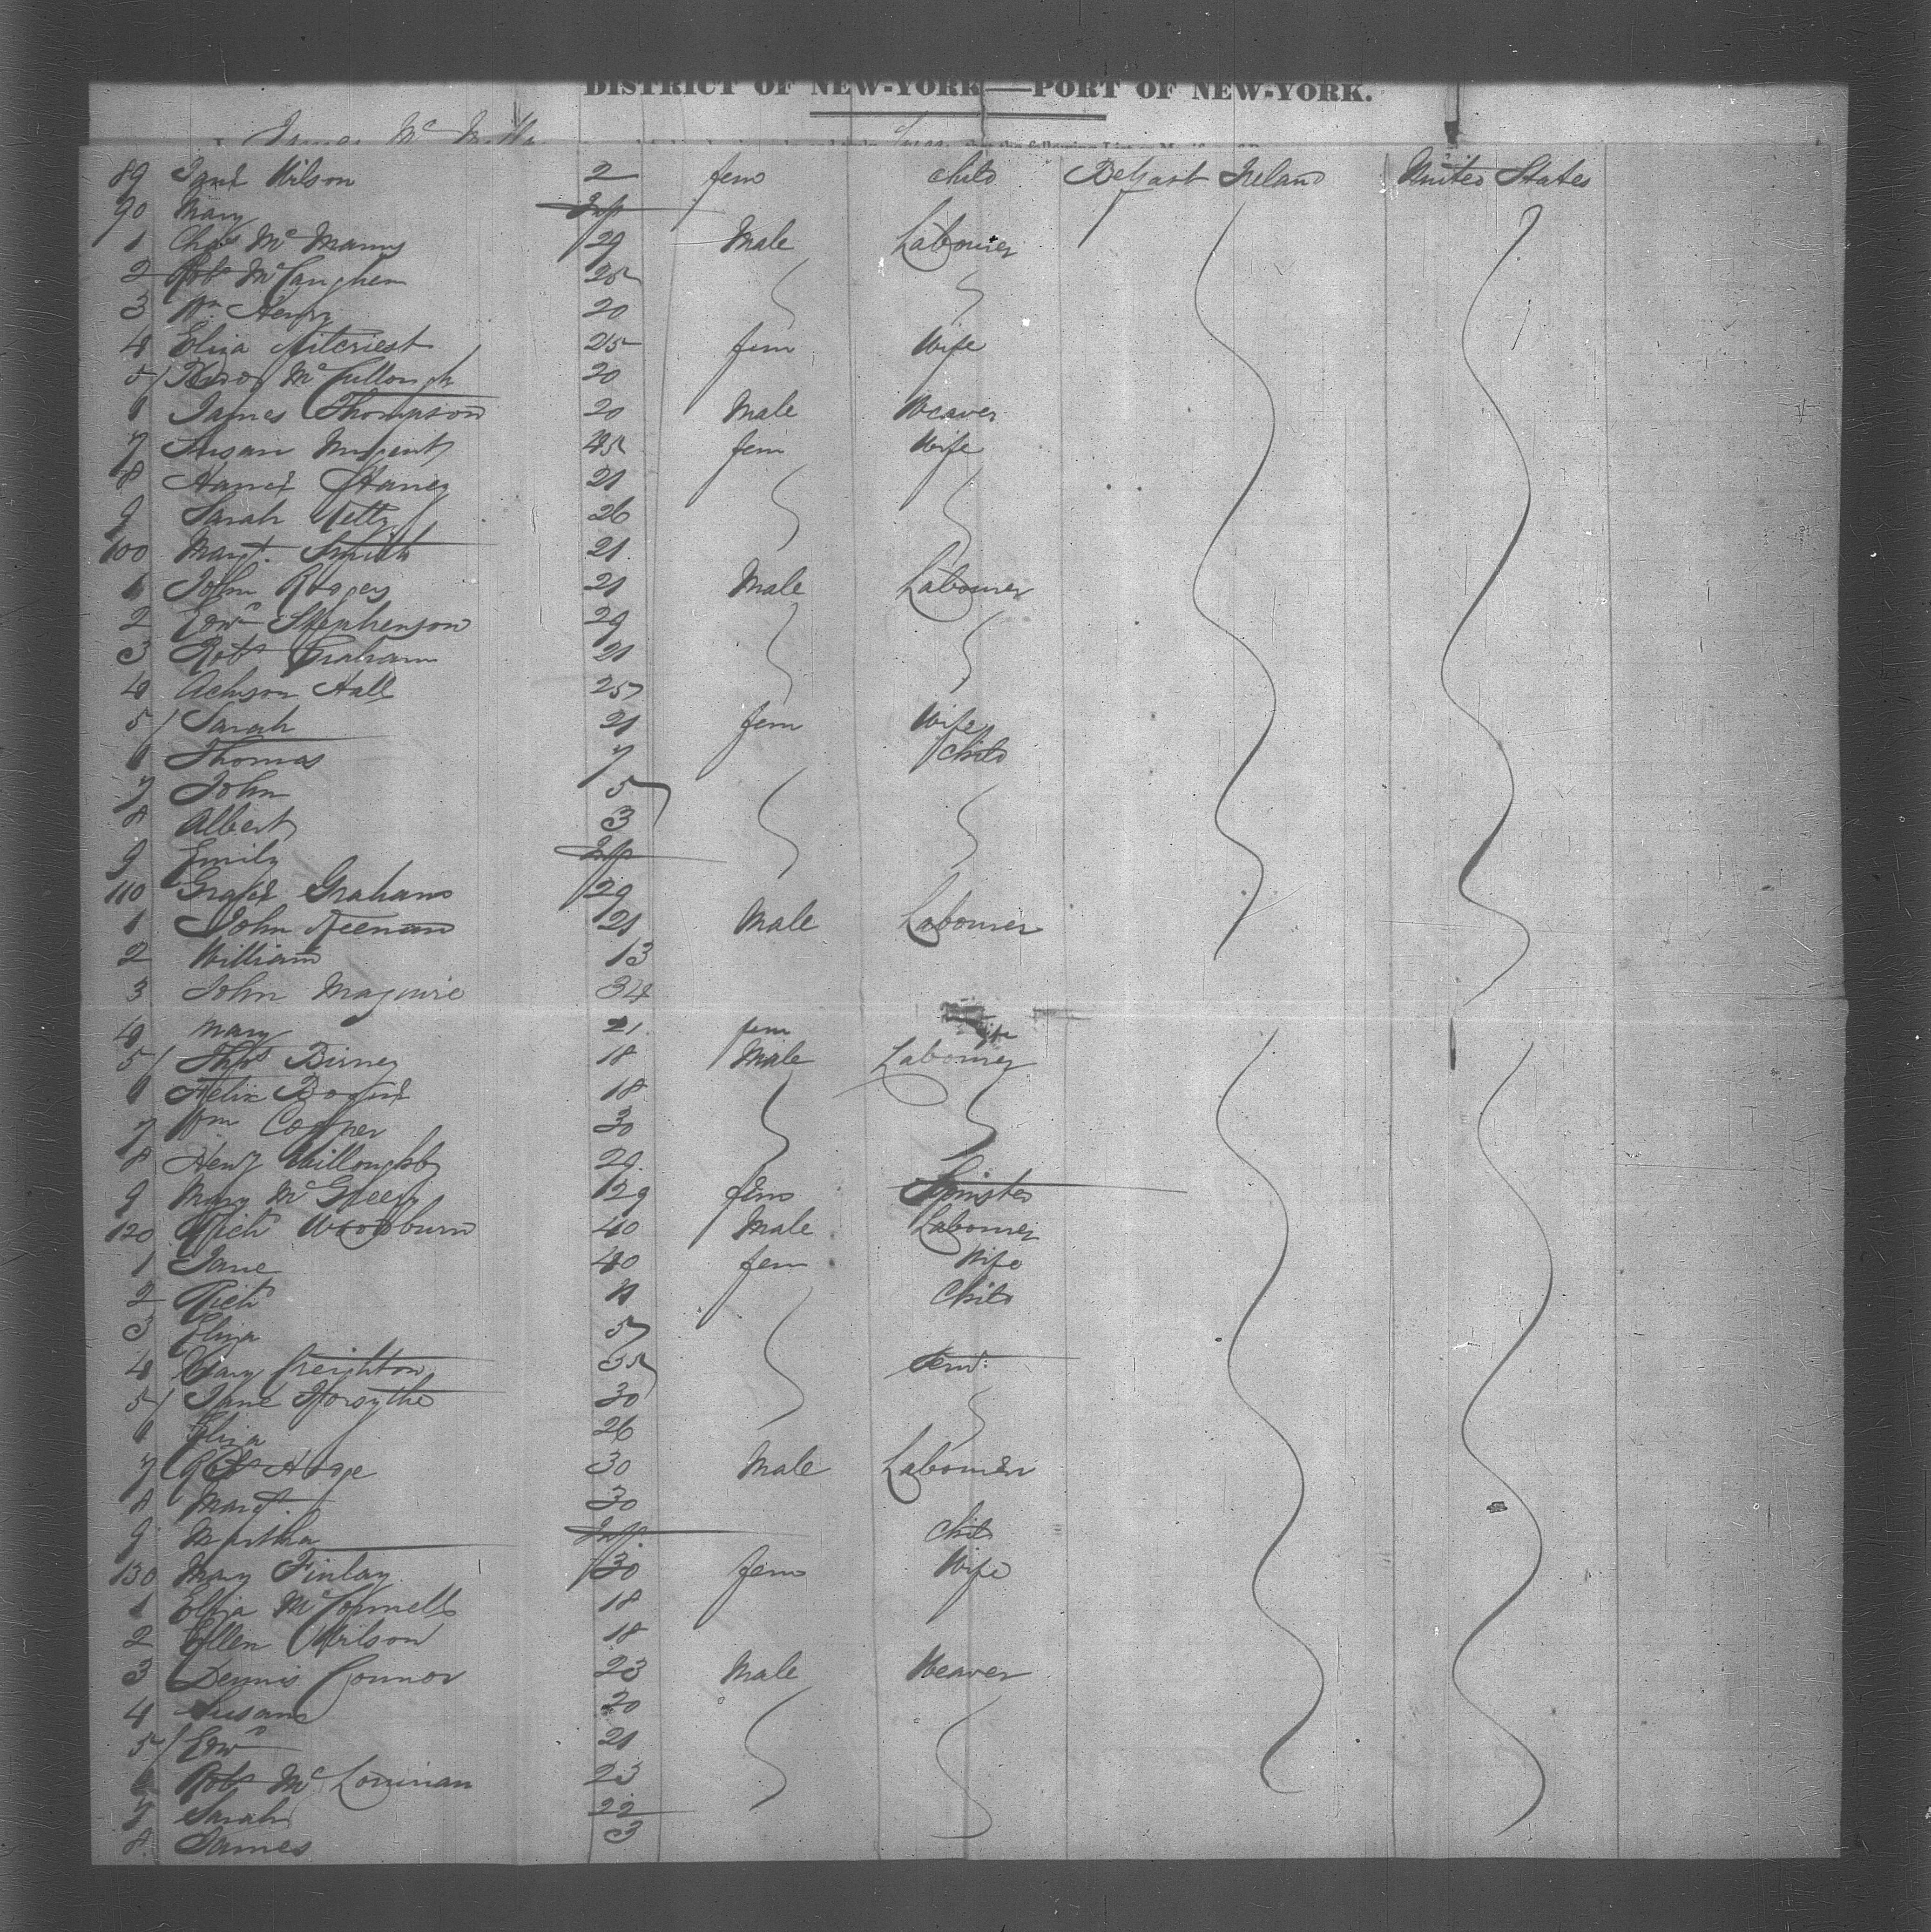 DISTRICT OF NEW-YORK—PORT OF NEW-YORK.
James Mc
89 Jane Wilson 2 fem child Belfast Ireland United States
90 Mary Inft
1 Chas McManus 29 Male Labourer
2 Robt 25
3 Wm Henry 20
4 Eliza 25 fem Wife
5 McCullough 20
6 James Thompson 20 Male Weaver
7 Susan Nugent 45 fem Wife
8 Haney 21
9 Sarah 26
100 Margt. Smith 21
1 John Rogers 21 Male Labourer
2 Edwd Stephenson 29
3 Robt Graham 21
4 Acheson Hall 25
5 Sarah 21 fem Wife
6 Thomas 7 Child
7 John 5
8 Albert 3
9 Emily Inft
110 Graham 29
1 John Keenan 21 Male Labourer
2 William 13
3 John Maguire 34
4 Mary 21 fem Wife
5 Thos Birney 18 Male Labourer
6 Felix 18
7 Wm Cooper 30
8 Henry Willoughby 29
9 Mary 29 fem Spinster
120 Richd Woodburn 40 Male Labourer
1 Jane 40 fem Wife
2 Richd Child
3 Eliza 5
4 Mary Creighton 35
5 Jane Forsythe 30
6 Eliza 26
7 Robt 30 Male Labourer
8 Margt. 30
9 Martha Inft. Child
130 Mary Finlay 30 fem Wife
1 Eliza McConnell 18
2 Ellen Wilson 18
3 Dennis Connor 23 Male Weaver
4 Susan 20
5 Edwd 21
6 Robt 23
7 Sarah 22
8 James 3